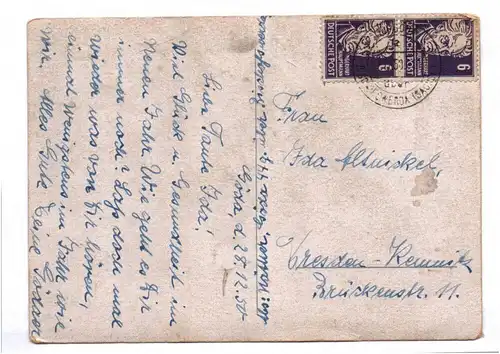 Göda, d. 28.12.50
Liebe Tante Ida!
Viel Glück u. Gesundheit im
Neuen Jahr. Wie geht es Dir
immer noch? Laß doch mal
wieder was von Dir hören,
einmal wenigstens im Jahr wie
wir. Alles Gute Deine
Frau
Ida Altnickel,
Dresden-Kemnitz
Brückenstr. 11.
DEUTSCHE POST
6
DEUTSCHE POST
6